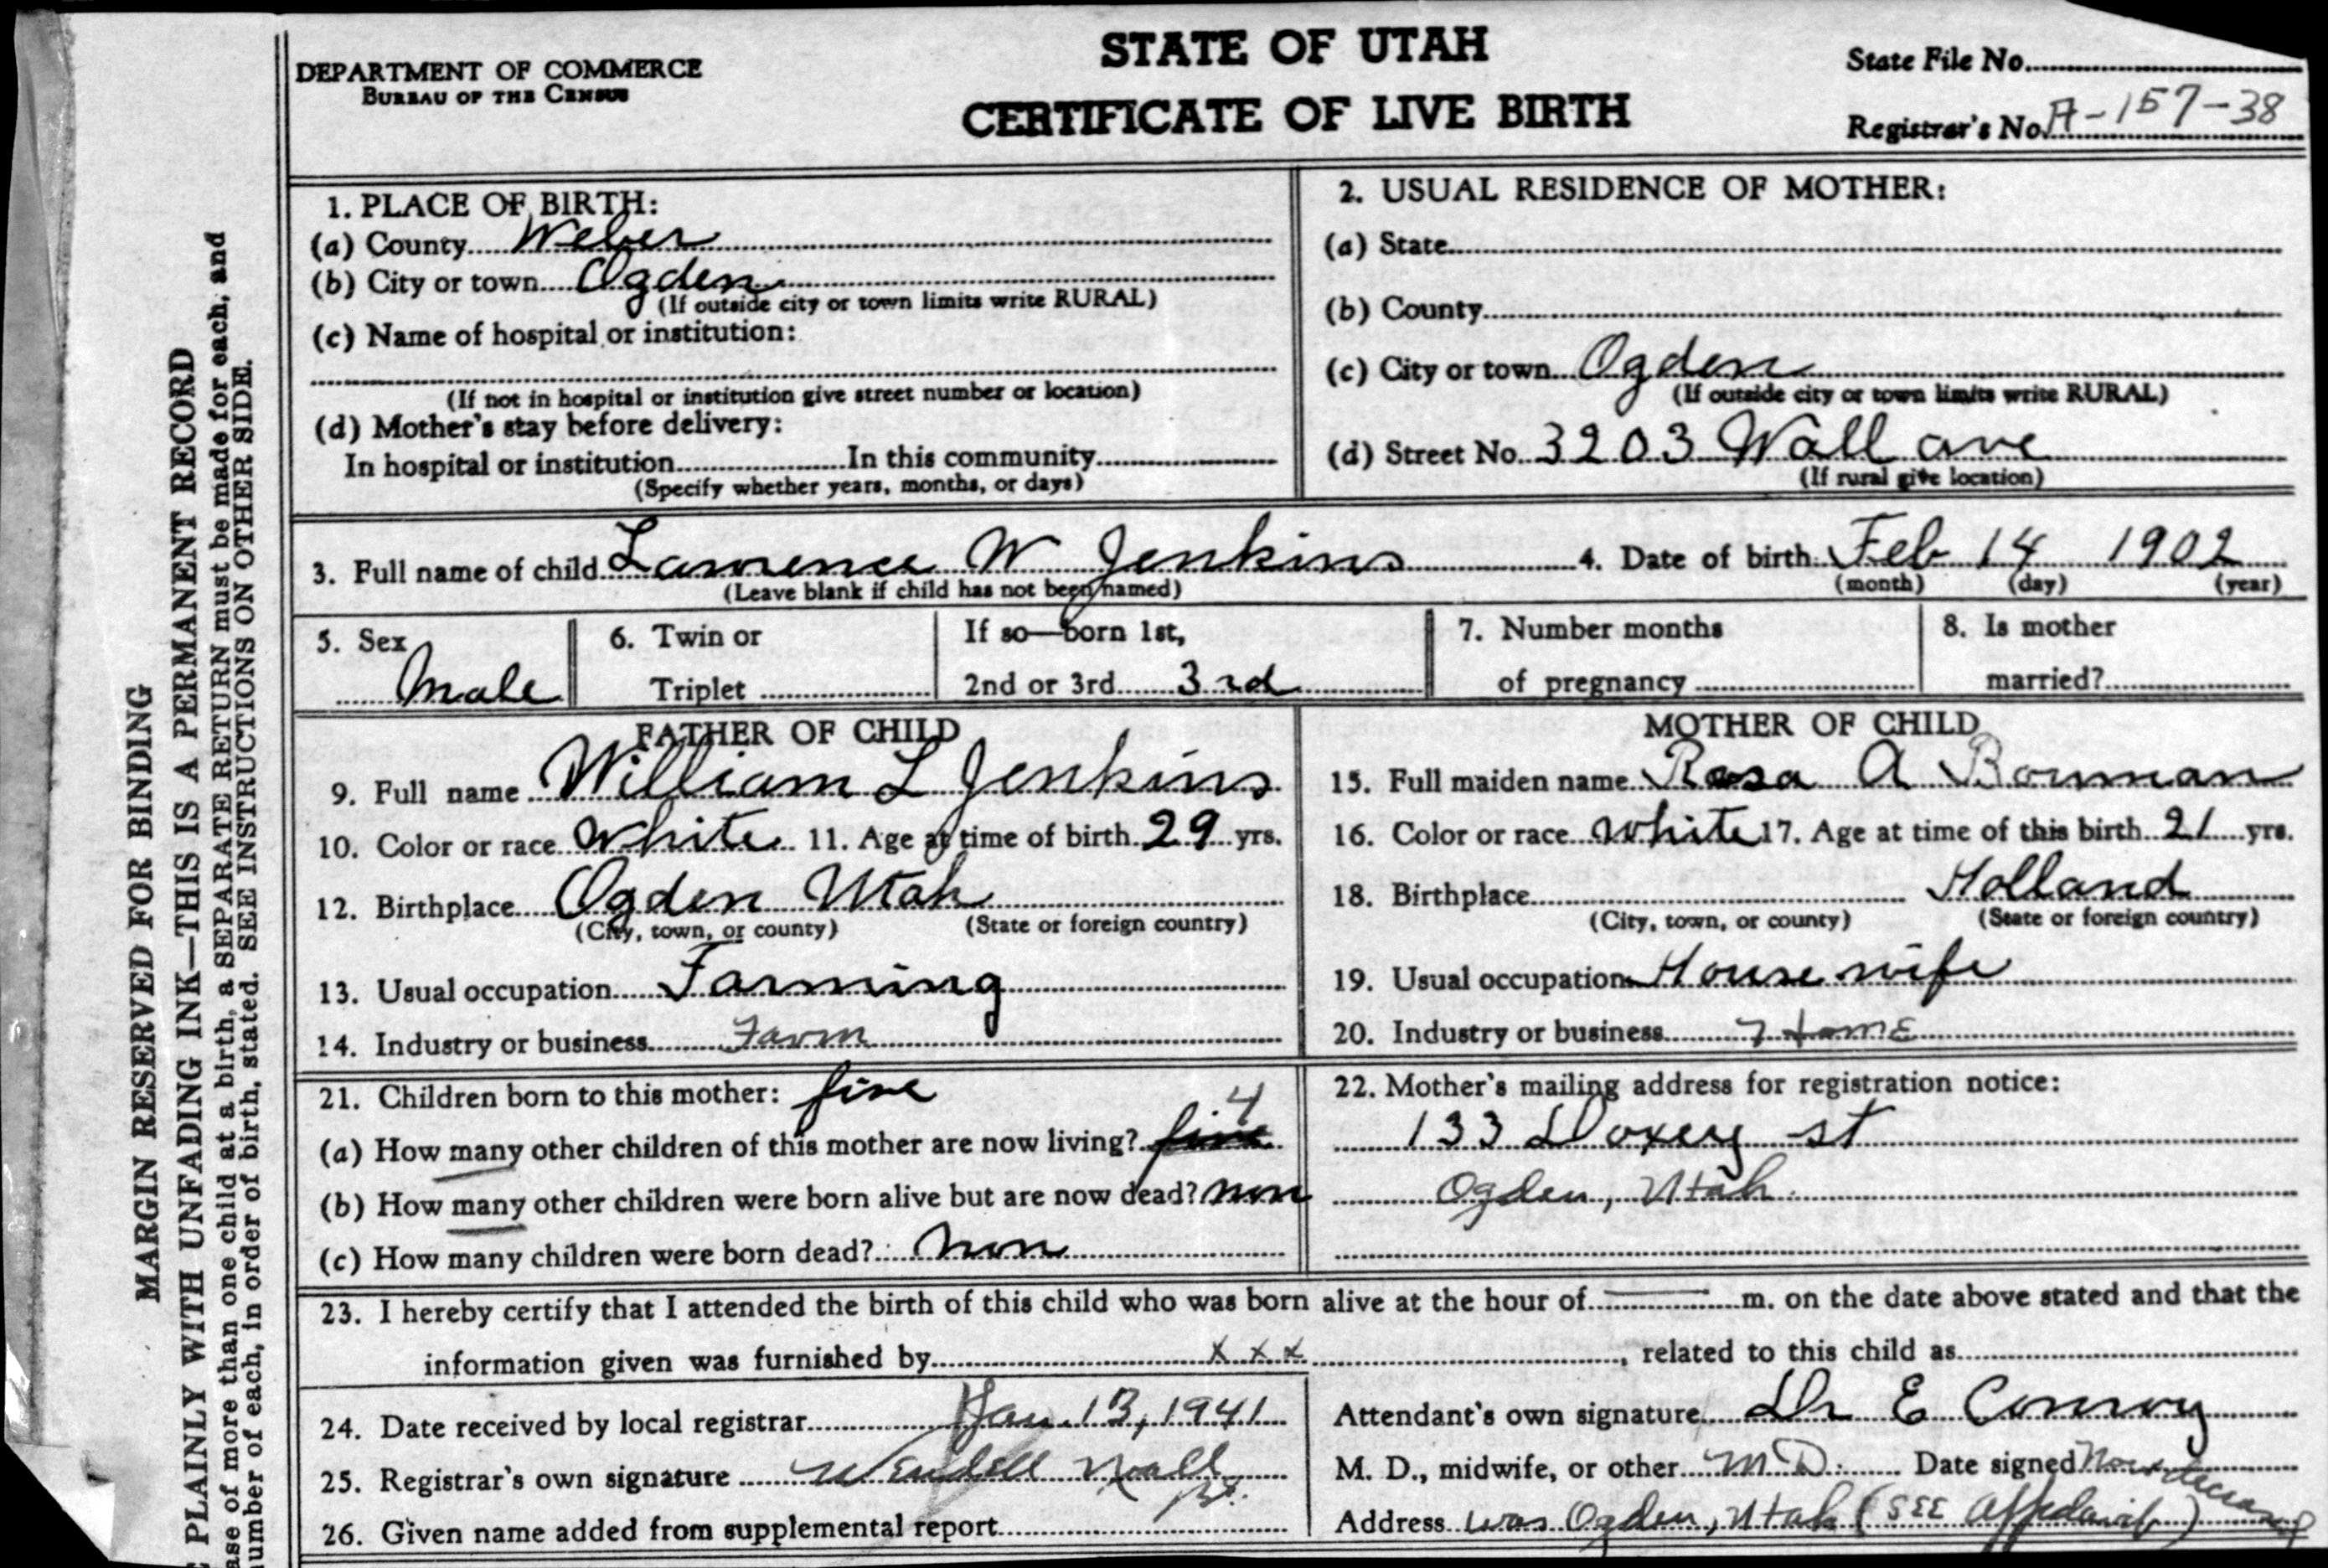 DEPARTMENT OF COMMERCE
BUREAU OF THE CENSUS
STATE OF UTAH
CERTIFICATE OF LIVE BIRTH
State File No.
Registrar's No. A-157-38
MARGIN RESERVED FOR BINDING
PLAINLY WITH UNFADING INK—THIS IS A PERMANENT RECORD
ase of more than one child at a birth, a SEPARATE RETURN must be made for each, and
number of each, in order of birth, stated. SEE INSTRUCTIONS ON OTHER SIDE.
1. PLACE OF BIRTH:
(a) County Weber
(b) City or town Ogden
(If outside city or town limits write RURAL)
(c) Name of hospital or institution:
(If not in hospital or institution give street number or location)
(d) Mother's stay before delivery:
In hospital or institution In this community
(Specify whether years, months, or days)
2. USUAL RESIDENCE OF MOTHER:
(a) State
(b) County
(c) City or town Ogden
(If outside city or town limits write RURAL)
(d) Street No. 3203 Wall ave
(If rural give location)
3. Full name of child Lawrence W Jenkins 4. Date of birth: Feb 14 1902
(Leave blank if child has not been named) (month) (day) (year)
5. Sex Male
6. Twin or
Triplet
If so—born 1st,
2nd or 3rd 3rd
7. Number months
of pregnancy
8. Is mother
married?
FATHER OF CHILD
9. Full name William L Jenkins
10. Color or race White 11. Age at time of birth 29 yrs.
12. Birthplace Ogden Utah
(City, town, or county) (State or foreign country)
13. Usual occupation Farming
14. Industry or business Farm
MOTHER OF CHILD
15. Full maiden name Rosa A Bowman
16. Color or race White 17. Age at time of this birth 21 yrs.
18. Birthplace Holland
(City, town, or county) (State or foreign country)
19. Usual occupation House wife
20. Industry or business Home
21. Children born to this mother: five
(a) How many other children of this mother are now living? five 4
(b) How many other children were born alive but are now dead? non
(c) How many children were born dead? non
22. Mother's mailing address for registration notice:
133 Doxey st
Ogden, Utah.
23. I hereby certify that I attended the birth of this child who was born alive at the hour of m. on the date above stated and that the
information given was furnished by x x x, related to this child as
24. Date received by local registrar Jan. 13, 1941
25. Registrar's own signature Wendell Wall
26. Given name added from supplemental report
Attendant's own signature Dr E Conroy
M. D., midwife, or other M D. Date signed Now deceased
Address was Ogden, Utah (SEE Affidavit)